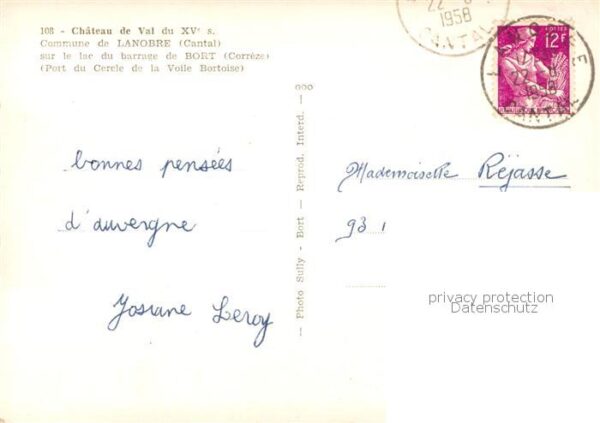 108 - Château de Val du XVᵉ s.
Commune de LANOBRE (Cantal)
sur le lac du barrage de BORT (Corrèze)
(Port du Cercle de la Voile Bortoise)
bonnes pensées
d'auvergne
Josiane Leroy
— Photo Sully - Bort — Reprod. Interd. — 000
22
1958
CANTAL
POSTES
12F
LANOBRE
22
1958
CANTAL
Mademoiselle Réjasse
93
privacy protection
Datenschutz